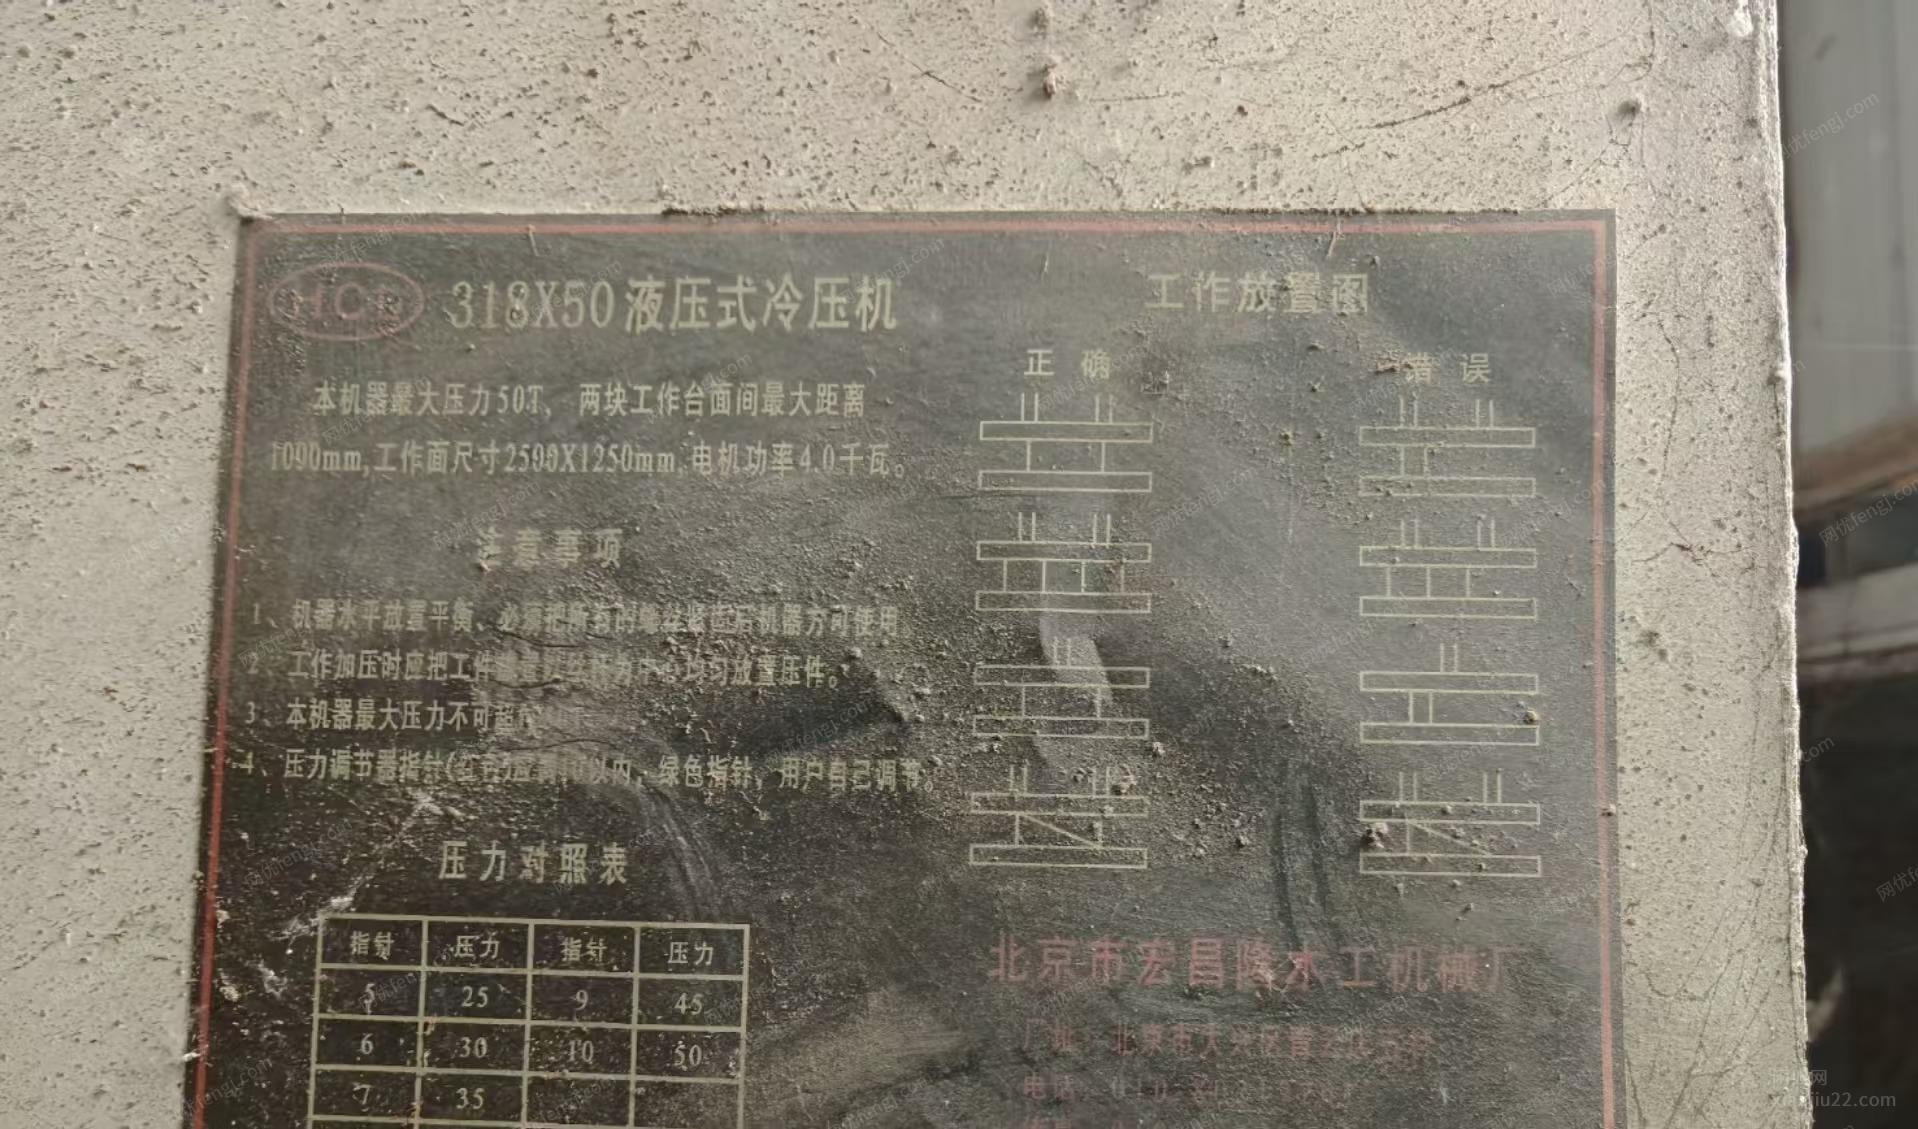 HCL 318X50液压式冷压机
本机器最大压力50T、两块工作台面间最大距离
1090mm,工作面尺寸2500X1250mm.电机功率4.0千瓦。
注意事项
1、机器水平放置平衡、必须把所有的 后机器方可使用
2、工作加压时应把工件 均匀放置压件。
3、本机器最大压力不可超
4、压力调节器指针(红色)应 以内,绿色指针,用户自己调节。
压力对照表
指针 压力 指针 压力
5 25 9 45
6 30 10 50
7 35
工作放置图
正确 错误
北京市宏昌隆木工机械厂
厂址:北京市大兴区
电话:010
网优fengj.com
xianjiu22.com